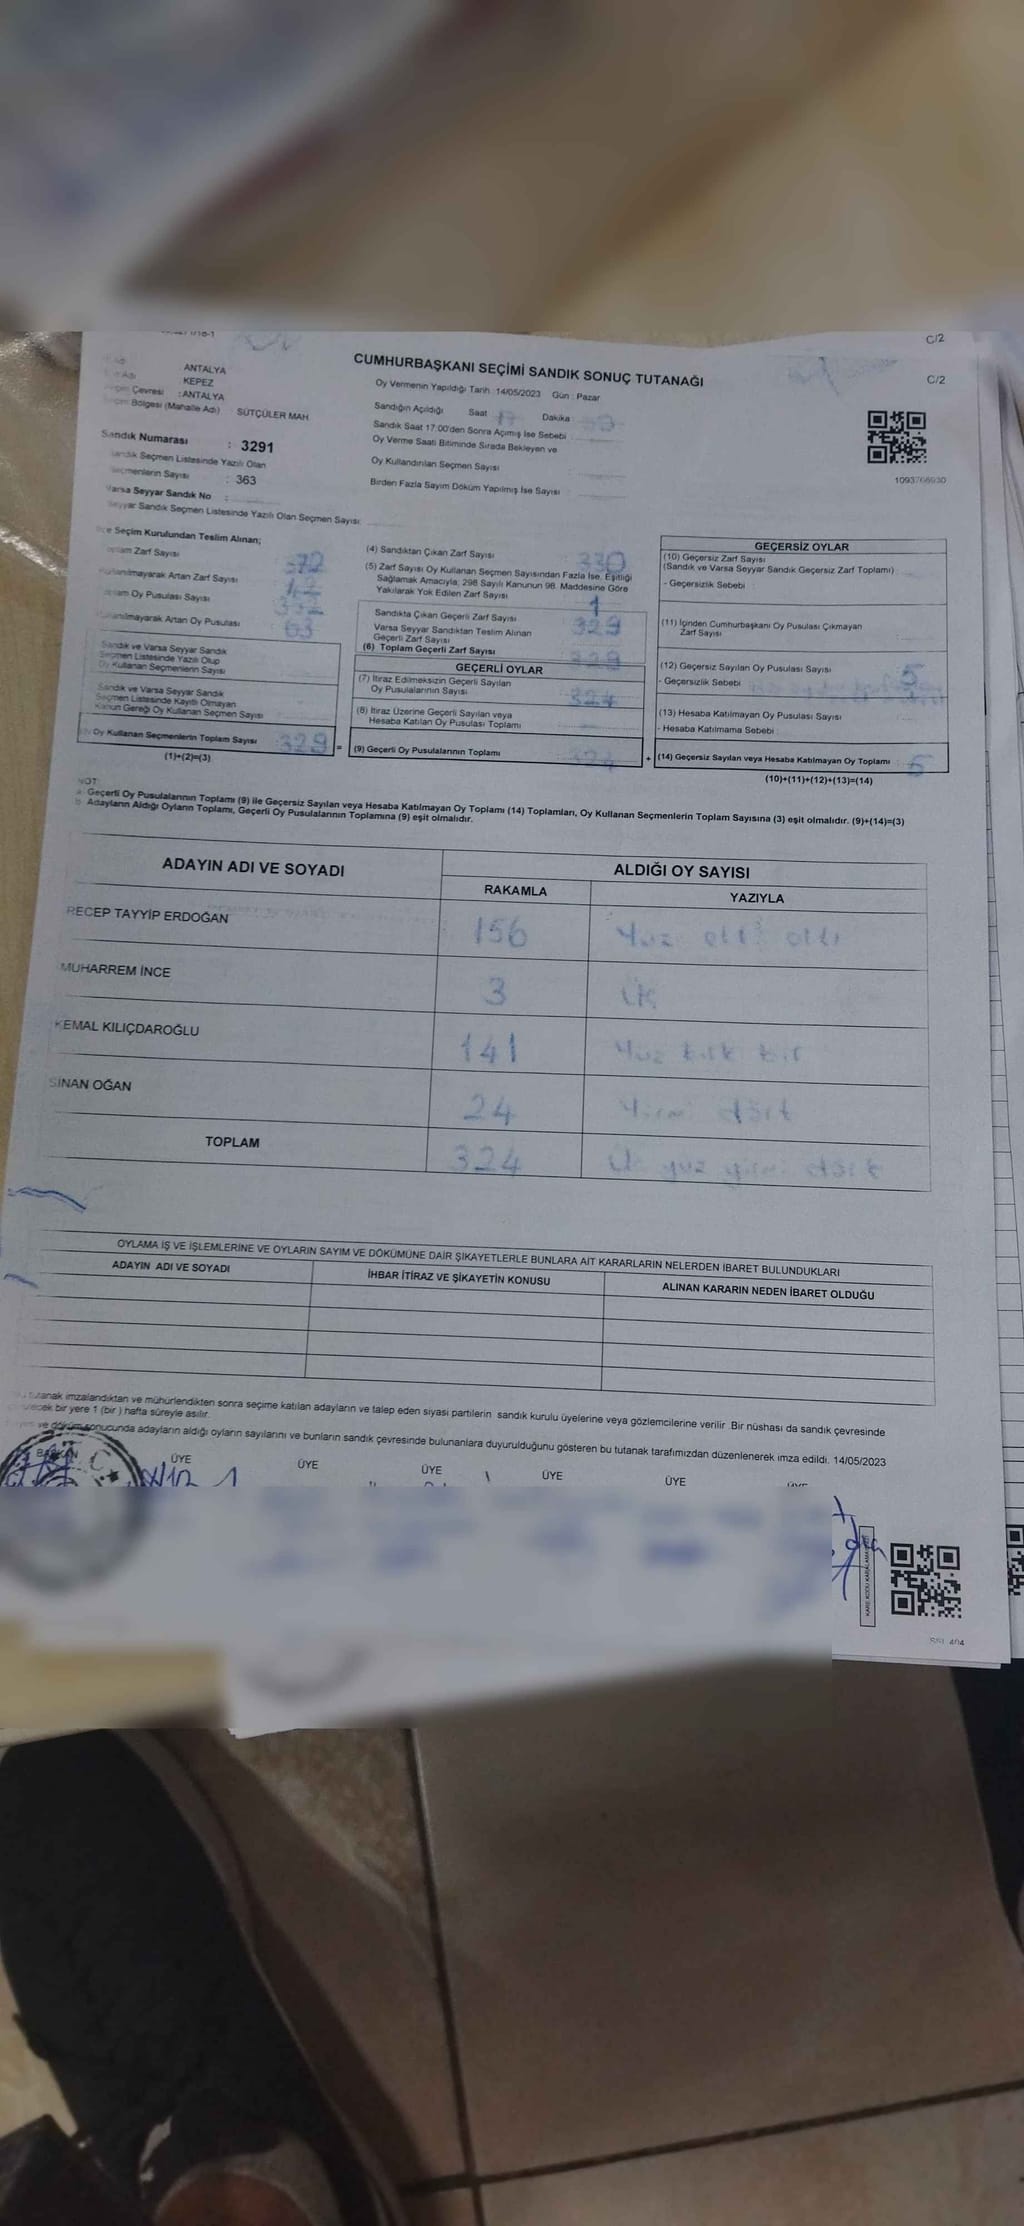 C/2
CUMHURBAŞKANI SEÇİMİ SANDIK SONUÇ TUTANAĞI
C/2
ANTALYA
KEPEZ
Çevresi : ANTALYA
Bölgesi (Mahalle Adı) SÜTÇÜLER MAH.
Sandık Numarası : 3291
Sandık Seçmen Listesinde Yazılı Olan
Seçmenlerin Sayısı : 363
Varsa Seyyar Sandık No :
Seyyar Sandık Seçmen Listesinde Yazılı Olan Seçmen Sayısı:
Oy Vermenin Yapıldığı Tarih : 14/05/2023 Gün : Pazar
Sandığın Açıldığı Saat 17 Dakika
Sandık Saat 17:00'den Sonra Açılmış İse Sebebi
Oy Verme Saati Bitiminde Sırada Bekleyen ve
Oy Kullandırılan Seçmen Sayısı
Birden Fazla Sayım Döküm Yapılmış İse Sayısı
1093766930
Seçim Kurulundan Teslim Alınan;
Toplam Zarf Sayısı
Kullanılmayarak Artan Zarf Sayısı
Oy Pusulası Sayısı
Kullanılmayarak Artan Oy Pusulası 63
Sandık ve Varsa Seyyar Sandık
Seçmen Listesinde Yazılı Olup
Oy Kullanan Seçmenlerin Sayısı
Sandık ve Varsa Seyyar Sandık
Seçmen Listesinde Kayıtlı Olmayan
Kanun Gereği Oy Kullanan Seçmen Sayısı
Oy Kullanan Seçmenlerin Toplam Sayısı 329 =
(1)+(2)=(3)
(4) Sandıktan Çıkan Zarf Sayısı 330
(5) Zarf Sayısı Oy Kullanan Seçmen Sayısından Fazla İse, Eşitliği
Sağlamak Amacıyla; 298 Sayılı Kanunun 98. Maddesine Göre
Yakılarak Yok Edilen Zarf Sayısı 1
Sandıkta Çıkan Geçerli Zarf Sayısı 329
Varsa Seyyar Sandıktan Teslim Alınan
Geçerli Zarf Sayısı
(6) Toplam Geçerli Zarf Sayısı 329
GEÇERLİ OYLAR
(7) İtiraz Edilmeksizin Geçerli Sayılan
Oy Pusulalarının Sayısı 324
(8) İtiraz Üzerine Geçerli Sayılan veya
Hesaba Katılan Oy Pusulası Toplamı
(9) Geçerli Oy Pusulalarının Toplamı 324 +
GEÇERSİZ OYLAR
(10) Geçersiz Zarf Sayısı
(Sandık ve Varsa Seyyar Sandık Geçersiz Zarf Toplamı)
- Geçersizlik Sebebi :
(11) İçinden Cumhurbaşkanı Oy Pusulası Çıkmayan
Zarf Sayısı
(12) Geçersiz Sayılan Oy Pusulası Sayısı 5
- Geçersizlik Sebebi
(13) Hesaba Katılmayan Oy Pusulası Sayısı
- Hesaba Katılmama Sebebi :
(14) Geçersiz Sayılan veya Hesaba Katılmayan Oy Toplamı 5
(10)+(11)+(12)+(13)=(14)
NOT:
a- Geçerli Oy Pusulalarının Toplamı (9) ile Geçersiz Sayılan veya Hesaba Katılmayan Oy Toplamı (14) Toplamları, Oy Kullanan Seçmenlerin Toplam Sayısına (3) eşit olmalıdır. (9)+(14)=(3)
b- Adayların Aldığı Oyların Toplamı, Geçerli Oy Pusulalarının Toplamına (9) eşit olmalıdır.
ADAYIN ADI VE SOYADI ALDIĞI OY SAYISI
RAKAMLA YAZIYLA
RECEP TAYYİP ERDOĞAN 156 Yüz elli altı
MUHARREM İNCE 3 Üç
KEMAL KILIÇDAROĞLU 141 Yüz kırk bir
SİNAN OĞAN 24 Yirmi dört
TOPLAM 324 Üç yüz yirmi dört
OYLAMA İŞ VE İŞLEMLERİNE VE OYLARIN SAYIM VE DÖKÜMÜNE DAİR ŞİKAYETLERLE BUNLARA AİT KARARLARIN NELERDEN İBARET BULUNDUKLARI
ADAYIN ADI VE SOYADI İHBAR İTİRAZ VE ŞİKAYETİN KONUSU ALINAN KARARIN NEDEN İBARET OLDUĞU
tutanak imzalandıktan ve mühürlendikten sonra seçime katılan adayların ve talep eden siyasi partilerin sandık kurulu üyelerine veya gözlemcilerine verilir. Bir nüshası da sandık çevresinde
bir yere 1 (bir) hafta süreyle asılır.
ve döküm sonucunda adayların aldığı oyların sayılarını ve bunların sandık çevresinde bulunanlara duyurulduğunu gösteren bu tutanak tarafımızdan düzenlenerek imza edildi. 14/05/2023
BAŞKAN ÜYE ÜYE ÜYE ÜYE ÜYE ÜYE